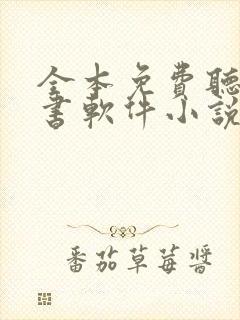 全本免費聽
書軟件小說
番茄草莓醬